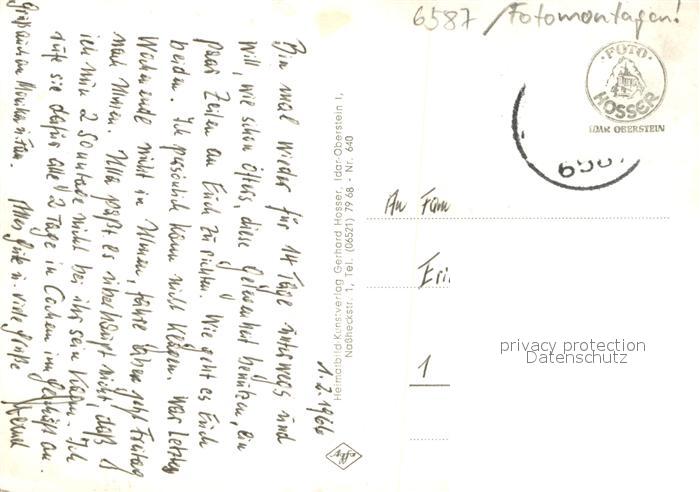 6587 / Fotomontagen!
FOTO
HOSSER
IDAR OBERSTEIN
658
An Fam
Eri
1
privacy protection
Datenschutz
Heimatbild-Kunstverlag Gerhard Hosser, Idar-Oberstein 1,
Naßheckstr. 1, Tel. (06521) 79 68 · Nr. 640
1.2.1966
Bin mal wieder für 14 Tage unterwegs und
will, wie schon öfters, diese Gelegenheit benützen, ein
paar Zeilen an Euch zu richten. Wie geht es Euch
beiden. Ich persönlich kann nicht klagen. War letztes
Wochenende nicht in Ulmen, fahre aber jetzt Freitag
nach Ulmen. Ulla paßt es überhaupt nicht, daß
ich nun 2 Sonntage nicht bei ihr sein kann. Ich
rufe sie dafür alle 2 Tage in Cochem im Geschäft an.
Alles Gute u. viele Grüße
Grüßt auch an Monika